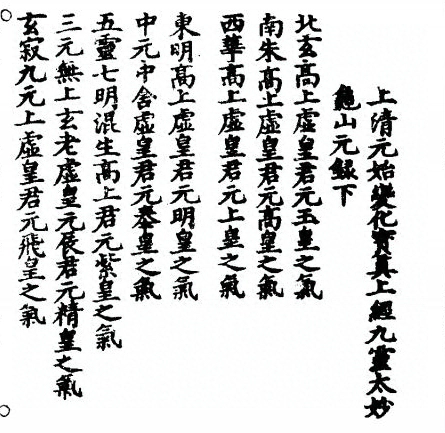 上清元始變化寳真上經九靈太妙
龜山元録下
北玄高上虛皇君元五皇之氣
南朱高上虛皇君元高皇之氣
西華高上虛皇君元上皇之氣
東明高上虛皇君元明皇之氣
中元中舍虛皇君元皇之氣
五靈七明混生高上君元紫皇之氣
三元無上玄老虛皇元辰君元精皇之氣
玄寂九元上虛皇君元飛皇之氣